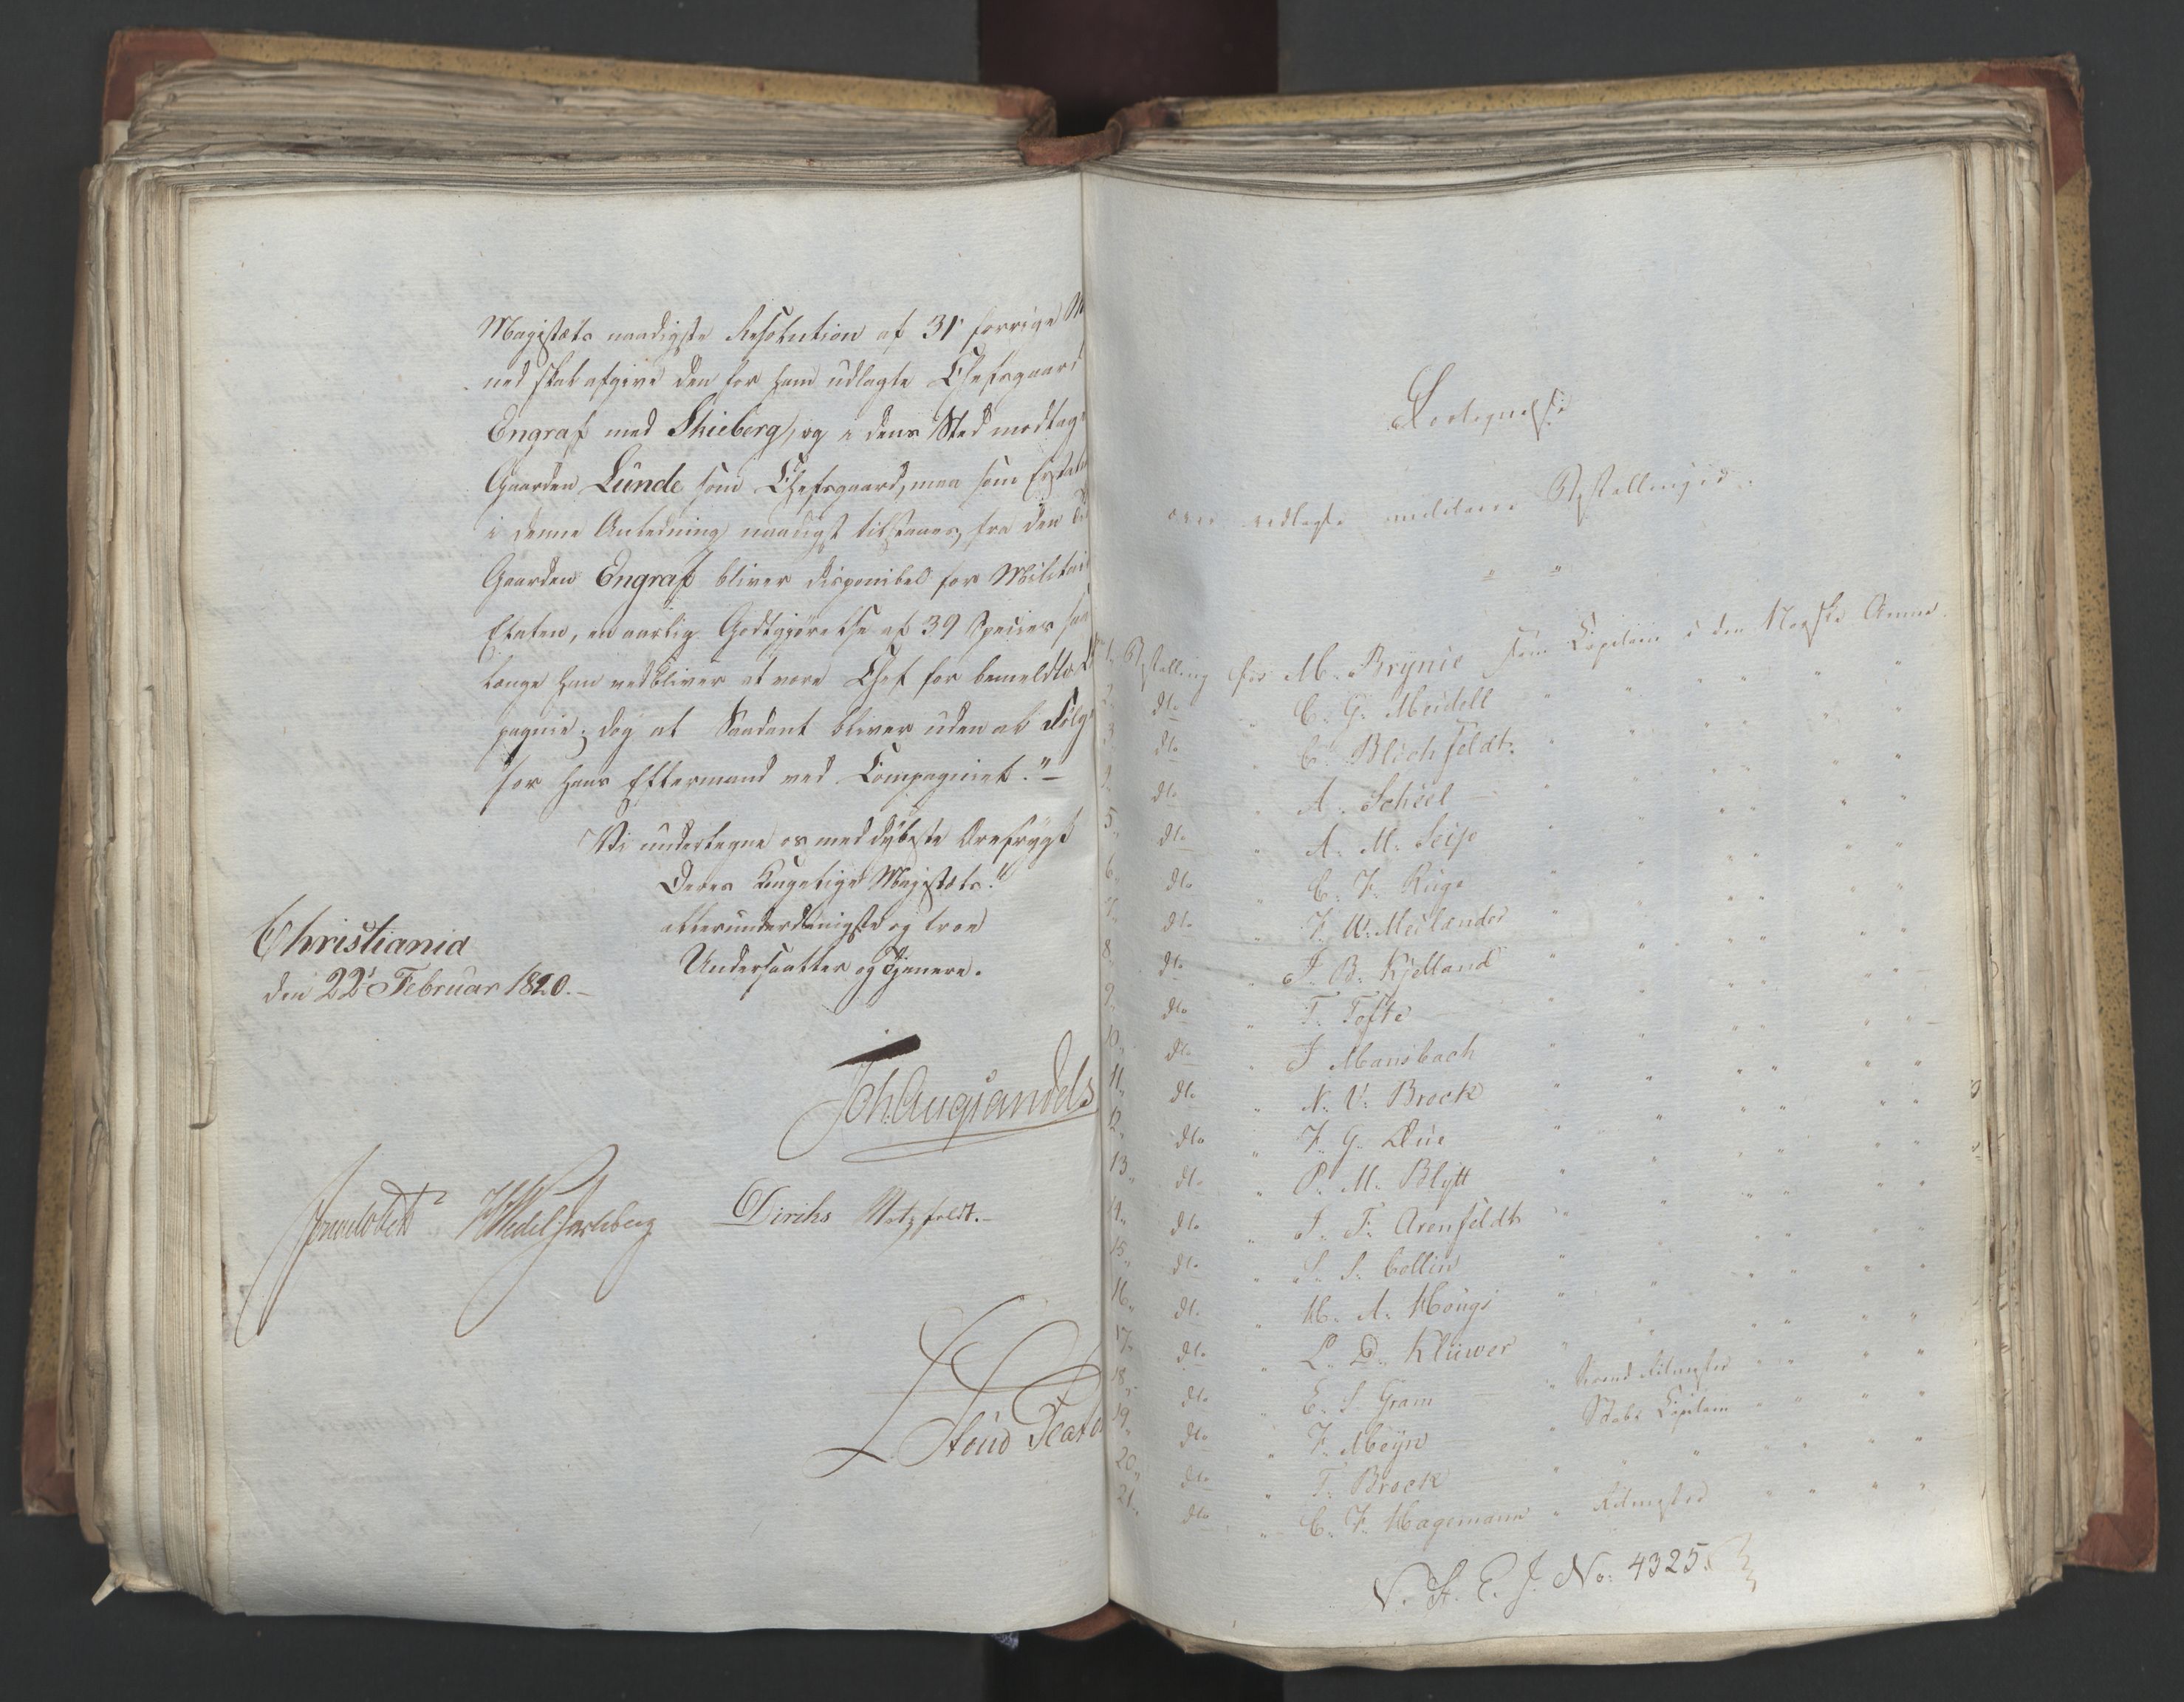 Majestæts naadigste Resolution af 31' forrige
ned skal afgive den for ham udlagte Chefsgaard
Engraf med Skieberg, og i dens Sted modtage
Gaarden Lunde som Chefsgaard, maa som
i denne Anledning naadigst tilstaaes, fra den
Gaarden Engraf bliver disponibel for Militair
Etaten, en aarlig Godtgjørelse af 39 Species saa
længe han vedbliver at være Chef for bemeldte
pagnie; dog at Saadant bliver uden al Følge
for hans Eftermand ved Compagniet."
Vi undertegne os med dybeste Ærefrygt
Deres Kongelige Majestæts
allerunderdanigste og troe
Undersaatter og Tjenere.
Christiania
den 22' Februar 1820.
Joh. Aug. Sandels
Sommerhielm HWedel Jarlsberg Diriks Motzfeldt.
over vedlagte militaire Bestallinger.
1. Bestalling for M. Brynie som Capitain i den Norske Armee.
2. dto " C. G. Meidell " " " " "
3. dto " C. Blichfeldt " " " " "
4. dto " A. Scheel " " " " "
5. dto " A. M. Seip " " " " "
6. dto " C. F. Ruge " " " " "
7. dto " F. W. Meilander " " " " "
8. dto " J. B. Kjelland " " " " "
9. dto " T. Tofte " " " " "
10. dto " J. Mansbach " " " " "
11. dto " N. V. Brock " " " " "
12. dto " F. G. Due " " " " "
13. dto " P. M. Blytt " " " " "
14. dto " J. F. Arenfeldt " " " " "
15. dto " J. S. Collin " " " " "
16. dto " H. A. Hougs " " " " "
17. dto " L. D. Klüwer " " " " "
18. dto " E. S. Gram " Second Ritmester " " " "
19. dto " F. Meyn " Stabs Capitain " " " "
20. dto " T. Brock " " " " " "
21. dto " C. F. Hagemann " Ritmester " " " "
N. St. E. J. No. 4325.